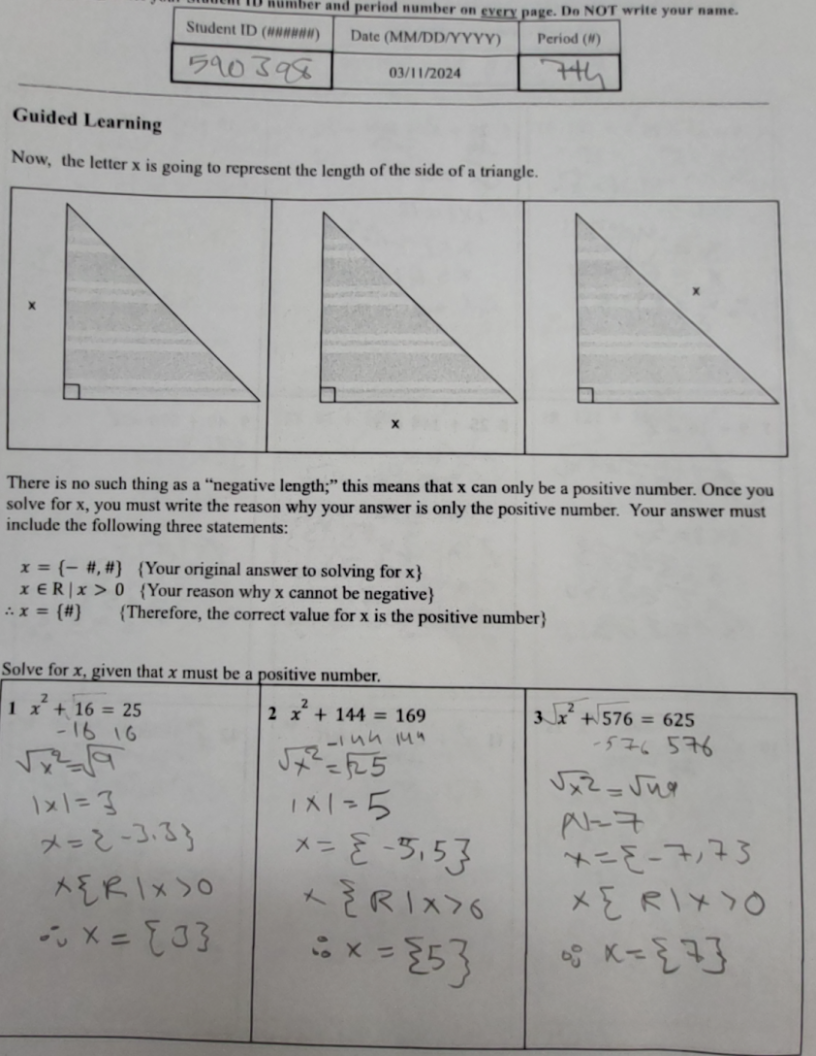 ID number and period number on every page. Do NOT write your name.
Student ID (######) Date (MM/DD/YYYY) Period (#)
590398 03/11/2024 7th
Guided Learning
Now, the letter x is going to represent the length of the side of a triangle.
x
x
x
There is no such thing as a “negative length;” this means that x can only be a positive number. Once you
solve for x, you must write the reason why your answer is only the positive number. Your answer must
include the following three statements:
x = {− #, #} {Your original answer to solving for x}
x ∈ R | x > 0 {Your reason why x cannot be negative}
∴ x = {#} {Therefore, the correct value for x is the positive number}
Solve for x, given that x must be a positive number.
1 x² + 16 = 25
-16 16
√x² = √9
|x| = 3
x = {-3,3}
x { R | x > 0
∴ x = {3}
2 x² + 144 = 169
-144 144
√x² = √25
|x| = 5
x = {-5,5}
x { R | x > 0
∴ x = {5}
3 √x² + √576 = 625
-576 576
√x² = √49
|x| = 7
x = {-7,7}
x { R | x > 0
∴ x = {7}